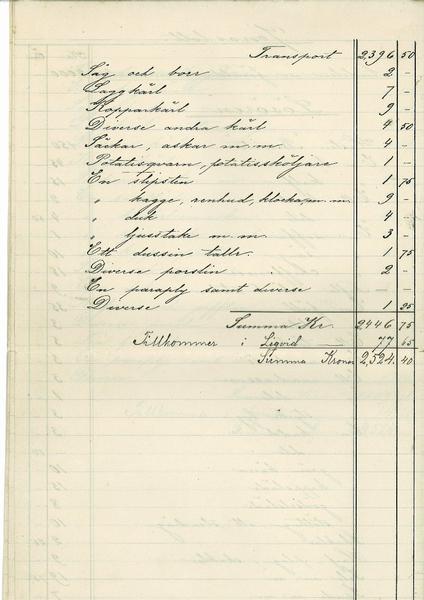 Transport 2,396 50
Såg och borr 2 -
Laggkärl 7 -
Kopparkärl 9 -
Diverse andra kärl 4 50
Säckar, askar m.m. 4 -
Potatisqvarn, potatissköljare 1 -
En slipsten 1 75
" kagge, renhud, klocka m.m. 9 -
" duk 4 -
" ljusstake m.m. 3 -
Ett dussin tallr. 1 75
Diverse porslin 2 -
En paraply samt diverse
Diverse 1 25
Summa Kr. 2446 75
Tillkommer i Liqvid 77 65
Summa Kronor 2,524. 40